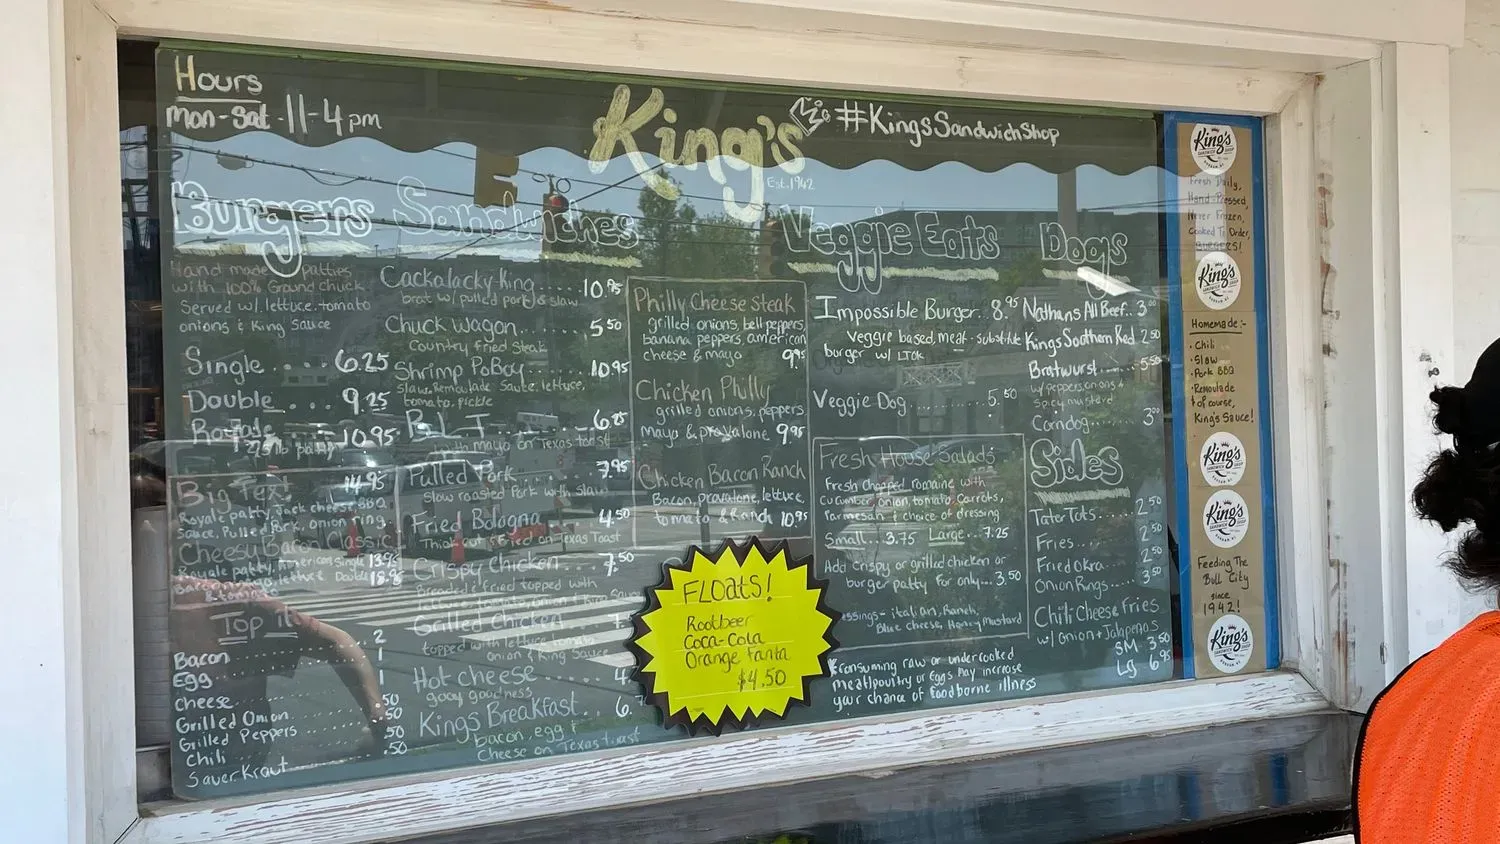 Hours
Mon-Sat 11-4pm
King's
Est. 1942
#KingsSandwichShop
Burgers
Hand made patties
with 100% Ground Chuck
Served w/ lettuce, tomato
onions & King Sauce
Single.... 6.25
Double.... 9.25
Royale.... 10.95
Big Tex! 14.95
Royale patty, Jack cheese, BBQ
Sauce, Pulled Pork, onion ring
Cheesy Bacon Classic
Royale patty, American Single 13.95
lettuce Double 18.95
& tomato
Top it
Bacon 2
Egg 1
Cheese 1
Grilled Onion .50
Grilled Peppers .50
Chili .50
Sauerkraut .50
Sandwiches
Cackalacky King..... 10.95
brat w/ pulled pork & slaw
Chuck Wagon...... 5.50
Country fried Steak
Shrimp PoBoy...... 10.95
Slaw, Remoulade Sauce, lettuce,
tomato, pickle
B L T 6.25
with mayo on Texas toast
Pulled Pork 7.95
Slow roasted Pork with slaw
Fried Bologna 4.50
Thick cut served on Texas Toast
Crispy Chicken 7.50
Breaded & fried topped with
Grilled Chicken
topped with lettuce tomato
onion & King Sauce
Hot cheese
gooy goodness
Kings Breakfast
bacon, egg &
Cheese on Texas toast
Philly Cheese Steak
grilled onions, bell peppers,
banana peppers, american
cheese & mayo 9.95
Chicken Philly
grilled onions, peppers
mayo & provalone 9.95
Chicken Bacon Ranch
Bacon, provalone, lettuce,
tomato & Ranch 10.95
FLoats!
Rootbeer
Coca-Cola
Orange Fanta
$4.50
Veggie Eats
Impossible Burger.. 8.95
Veggie based, meat-substitute
burger w/ LTOK
Veggie Dog.......... 5.50
Fresh House Salads
Fresh chopped romaine with
cucumber, onion, tomato, carrots,
Parmesan & choice of dressing
Small...3.75 Large...7.25
Add Crispy or grilled chicken or
burger patty for only... 3.50
essings- italian, Ranch,
Blue cheese, Honey Mustard
*Consuming raw or undercooked
meat/poultry or Eggs May increase
your chance of foodborne illness
Dogs
Nathans All Beef.. 3.00
Kings Southern Red 2.50
Bratwurst...... 5.50
w/ peppers, onions &
spicy mustard
Corndog...... 3.00
Sides
TaterTots.... 2.50
Fries...... 2.50
Fried okra... 2.50
Onion Rings.... 3.50
Chili Cheese Fries
w/ Onion + Jalapenos
SM. 3.50
LG 6.95
King's
SANDWICH SHOP
Fresh Daily,
Hand-Pressed,
Never Frozen,
Cooked To Order,
BURGERS!
King's
SANDWICH SHOP
DURHAM, NC
Homemade:-
• Chili
• Slaw
• Pork BBQ
• Remoulade
& of course,
King's Sauce!
King's
SANDWICH SHOP
King's
SANDWICH SHOP
DURHAM, NC
Feeding The
Bull City
since
1942!
King's
SANDWICH SHOP
DURHAM, NC